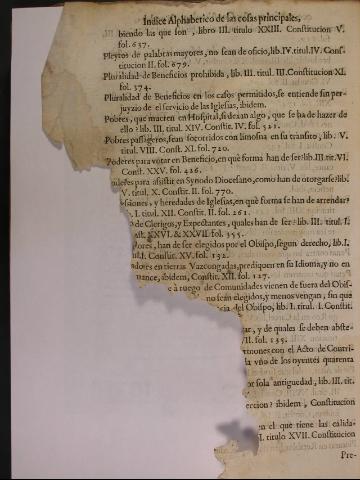 Indice Alphabetico de las cosas principales,
biendo las que son, libro III. titulo XXIII. Constitucion V.
fol. 637.
Pleytos de palabras mayores, no sean de oficio, lib. IV. titul. IV. Cons-
titucion II. fol. 679.
Pluralidad de Beneficios prohibida, lib. III. titul. III. Constitucion XI.
fol. 374.
Pluralidad de Beneficios en los casos permitidos, se entiende sin per-
juyzio de el servicio de las Iglesias, ibidem.
Pobres, que mueren en Hospital, si dexan algo, que se ha de hazer de
ello? lib. III. titul. XIV. Constit. IV. fol. 521.
Pobres passageros, sean socorridos con limosna en su transito, lib. V.
titul. VIII. Const. XI. fol. 720.
Poderes para votar en Beneficio, en què forma han de ser? lib. III. tit. VI.
Const. XXV. fol. 426.
deres para assistir en Synodo Diocesano, como han de otorgarse? lib.
V. titul. X. Constit. II. fol. 770.
ssiones, y heredades de Iglesias, en què forma se han de arrendar?
I. titul. XII. Constit. II. fol. 261.
de Clerigos, y Expectantes, quales han de ser? lib. III. titul. I.
st. XXVI. & XXVII. fol. 355.
dores, han de ser elegidos por el Obispo, segun derecho, lib. I.
tul. I. Constit. XV. fol. 132.
adores en tierras Vazcongadas, prediquen en su Idioma, y no en
mance, ibidem, Constit. XII. fol. 127.
e à ruego de Comunidades vienen de fuera del Obis-
no seàn elegidos, y menos vengan, sin que
cia del Obispo, lib. I. titul. I. Constit.
ar, y de quales se deben abste-
II. fol. 135.
rmones con el Acto de Contri-
la vno de los oyentes quarenta
or sola antiguedad, lib. III. tit.
ercion? ibidem, Constitucion
en el que tiene las calida-
I. titulo XVII. Constitucion
Pre-